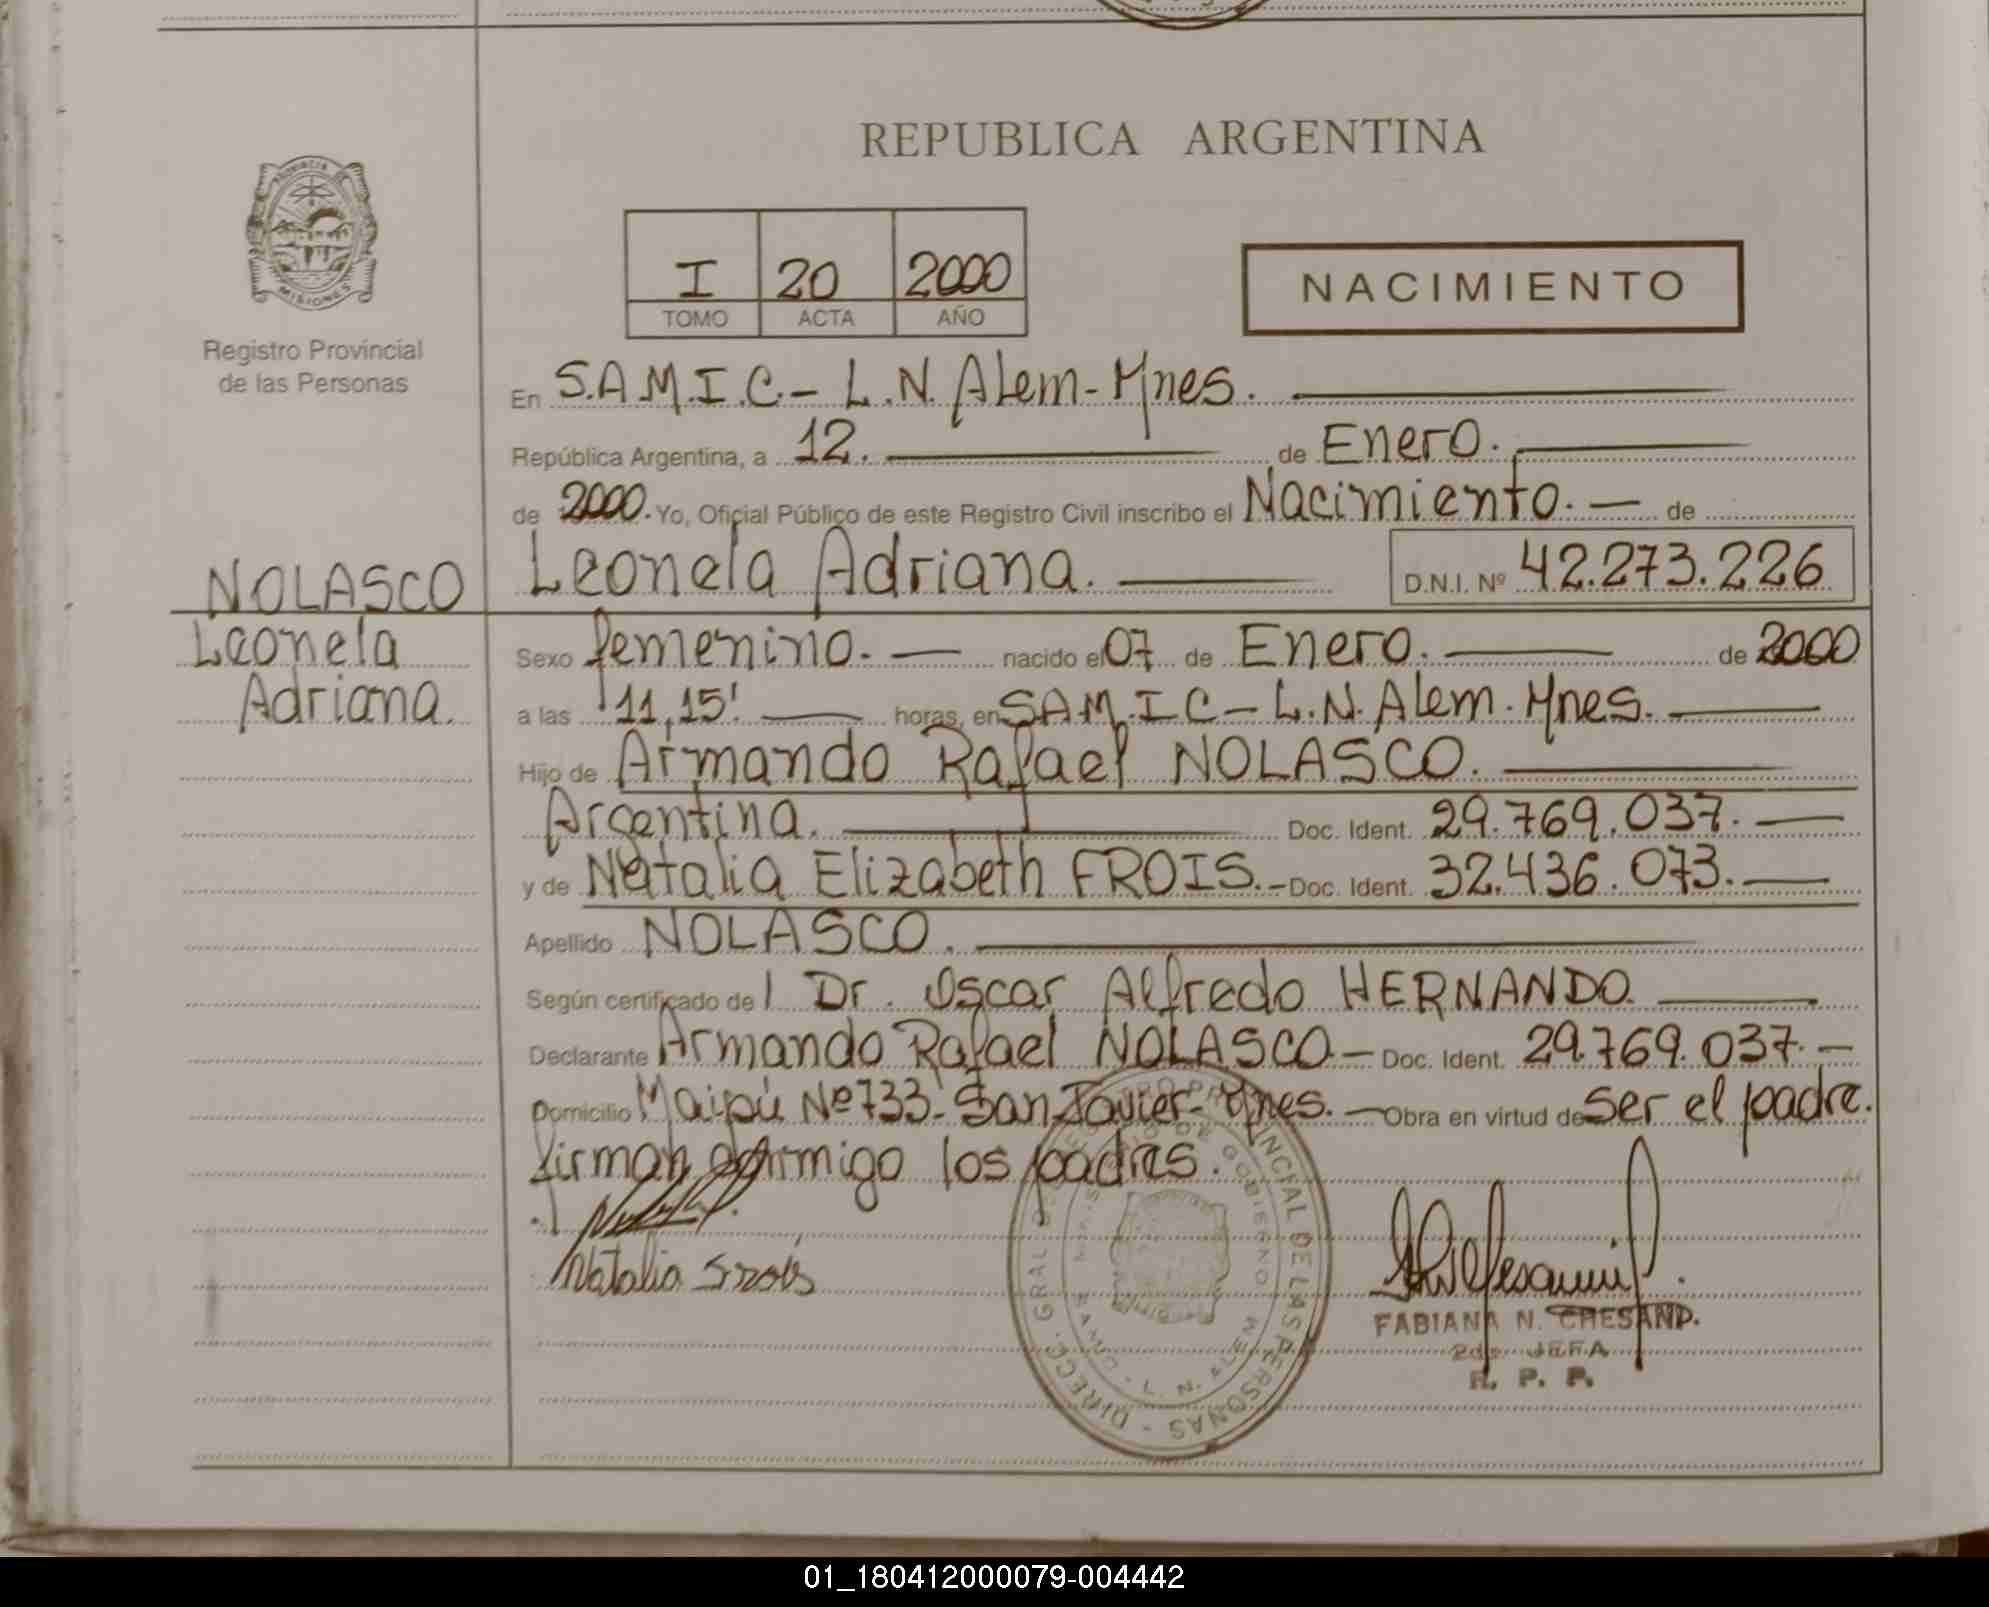 REPUBLICA ARGENTINA
PROVINCIA DE
MISIONES
Registro Provincial
de las Personas
I 20 2000
TOMO ACTA AÑO
NACIMIENTO
En S.A.M.I.C.- L.N. Alem-Mnes.
República Argentina, a 12. de Enero.
de 2000. Yo, Oficial Público de este Registro Civil inscribo el Nacimiento. - de
NOLASCO Leonela Adriana. D.N.I. Nº 42.273.226
Leonela Sexo femenino. - nacido el 07 de Enero. de 2000
Adriana. a las 11,15' horas, en SAM.I.C - L.N. Alem. Mnes.
Hijo de Armando Rafael NOLASCO.
Argentina. Doc. Ident. 29.769.037. -
y de Natalia Elizabeth FROIS.- Doc. Ident. 32.436.073. -
Apellido NOLASCO.
Según certificado de l Dr. Oscar Alfredo HERNANDO.
Declarante Armando Rafael NOLASCO - Doc. Ident. 29.769.037. -
Domicilio Maipú Nº 733- San Javier- Mnes. - Obra en virtud de ser el padre.
firman conmigo los padres.
Natalia Frois
DIRECC. GRAL. DEL REGISTRO PROVINCIAL DE LAS PERSONAS -
SAMIC - L. N. ALEM
FABIANA N. CHESANI.
2da. JEFA
R. P. P.
01_180412000079-004442